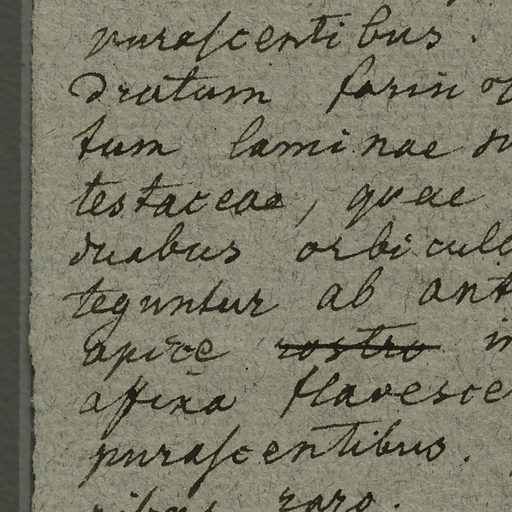 puraſcentibus.
dratum farin
tum laminae
testaceae, quae
duabus orbicul
teguntur ab ant
apice rostro in
affixa flavesce
puraſcentibus.
raro.